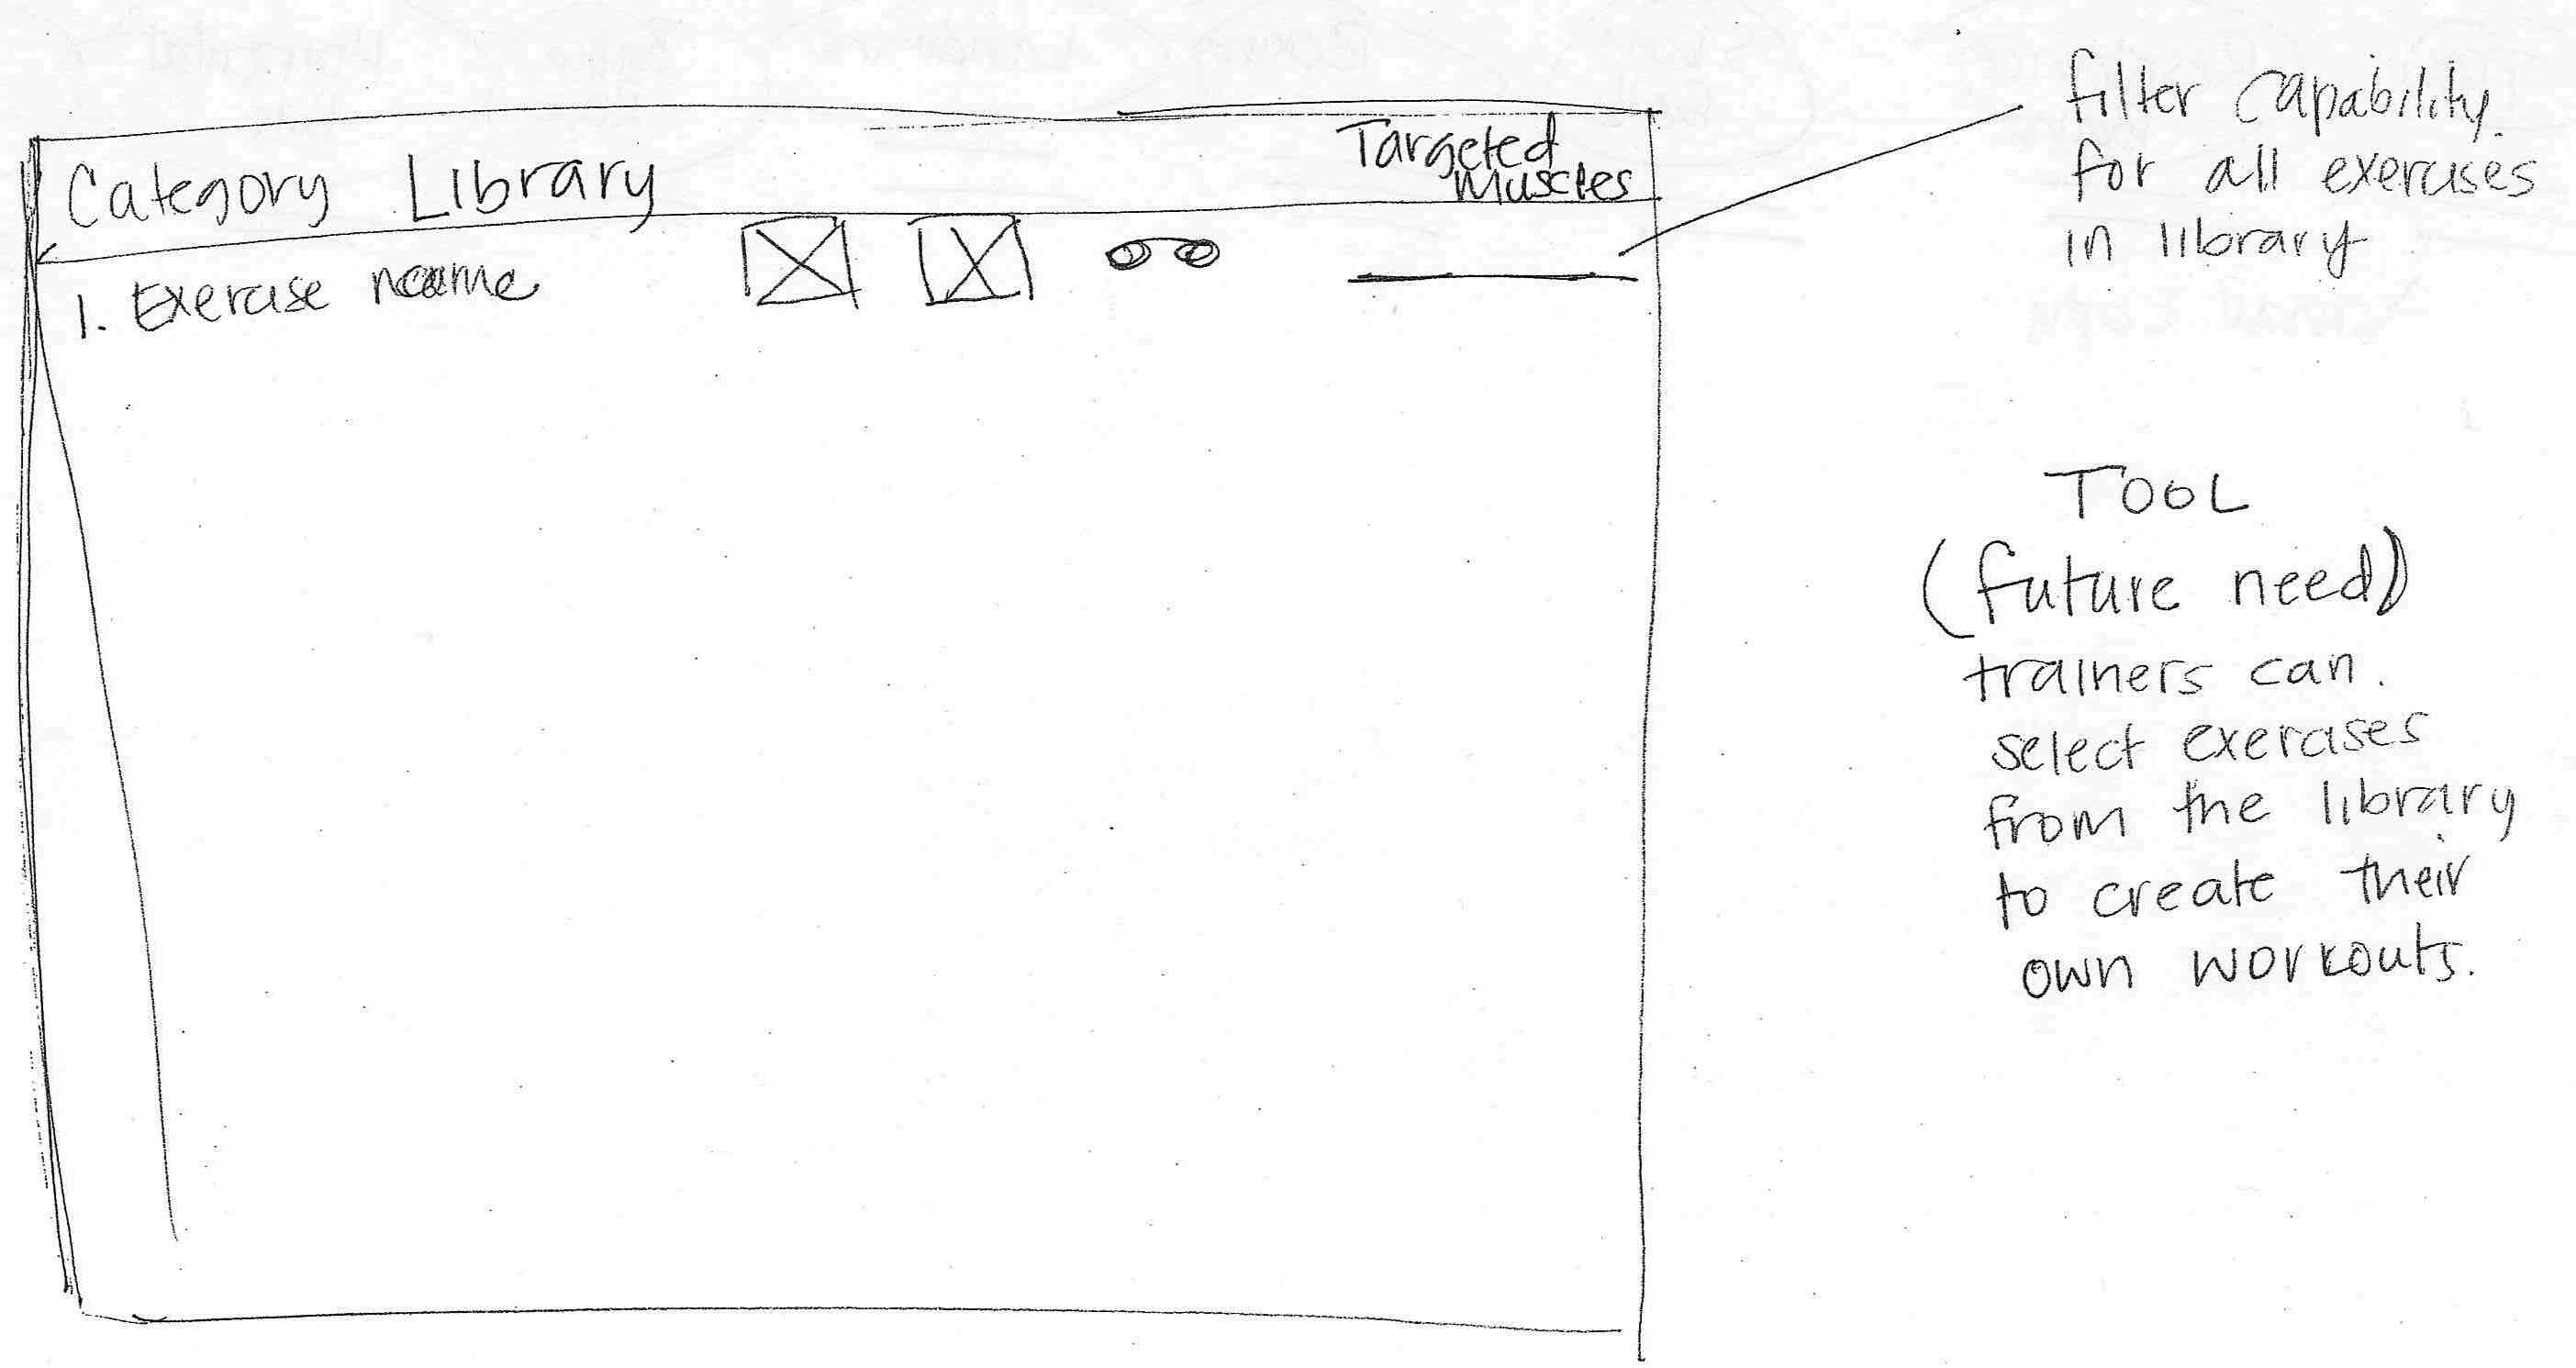 Category Library
Targeted
Muscles
1. Exercise name
filter capability.
for all exercises
in library
TOOL
(future need)
trainers can.
select exercises
from the library
to create their
own workouts.